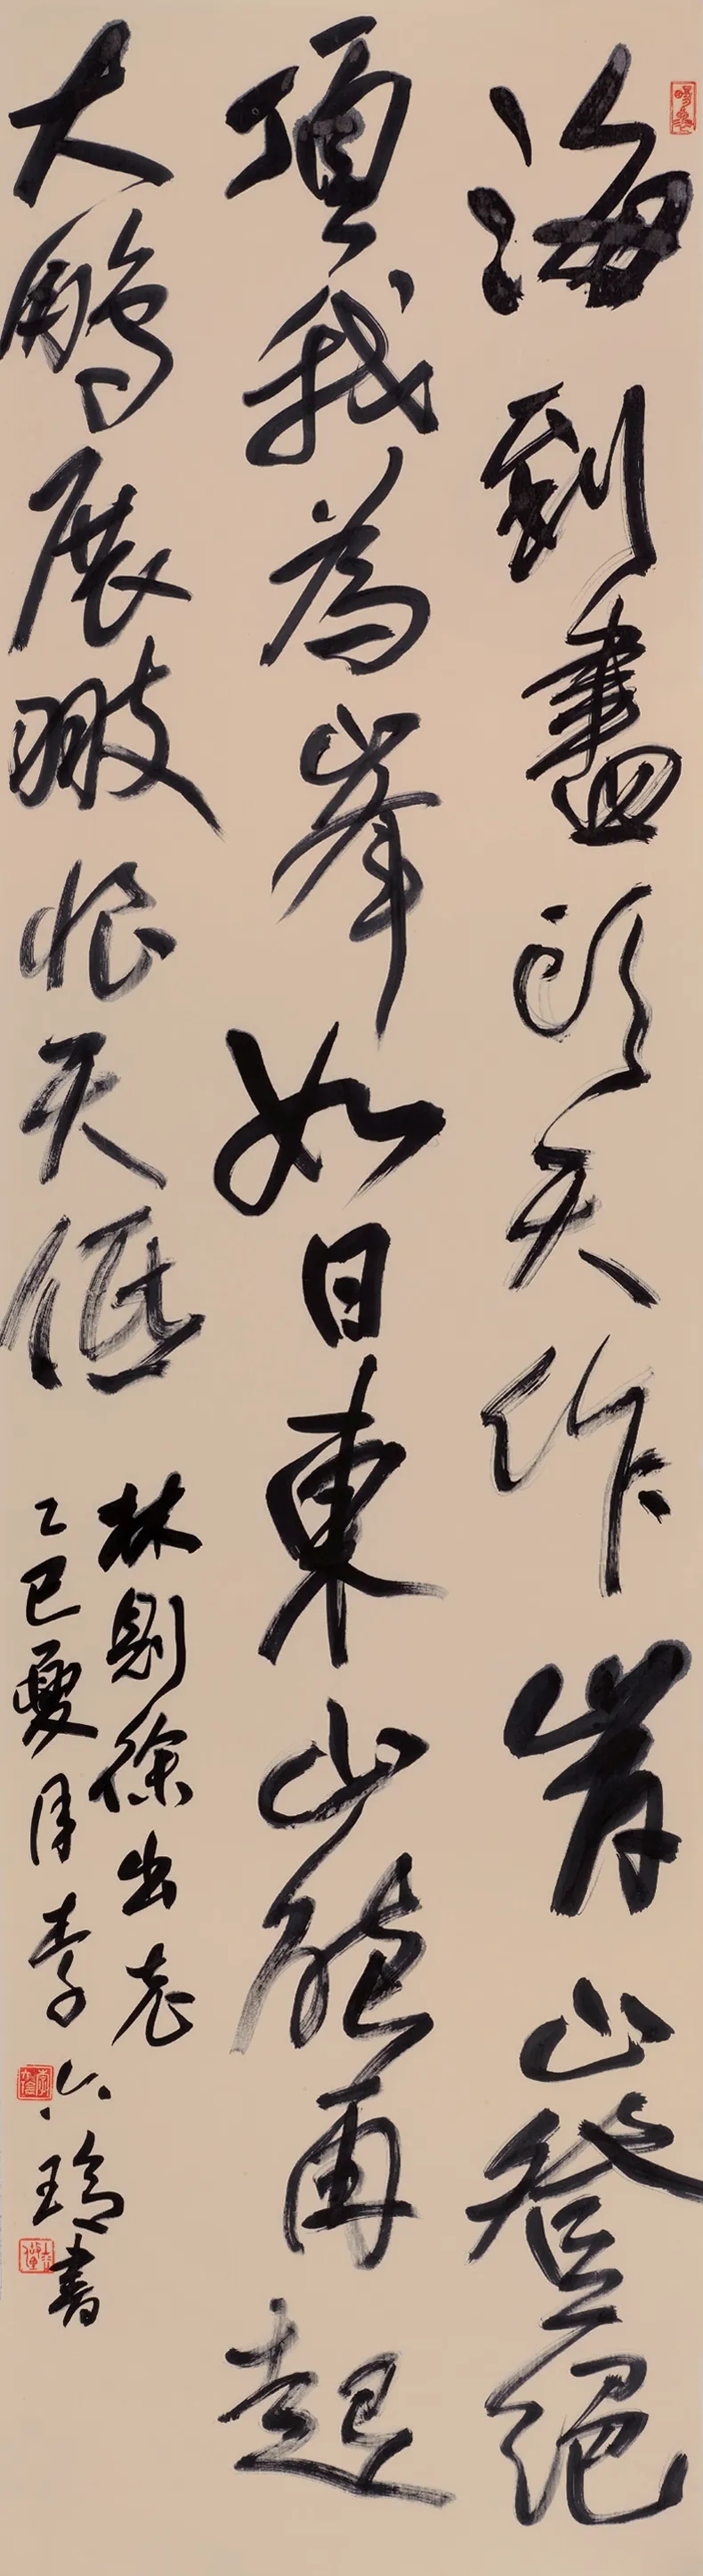 海到盡頭天作岸山登絕
頂我為峯如日東山能再起
大鵬展翅恨天低
林則徐出老
乙巳夏月李六書